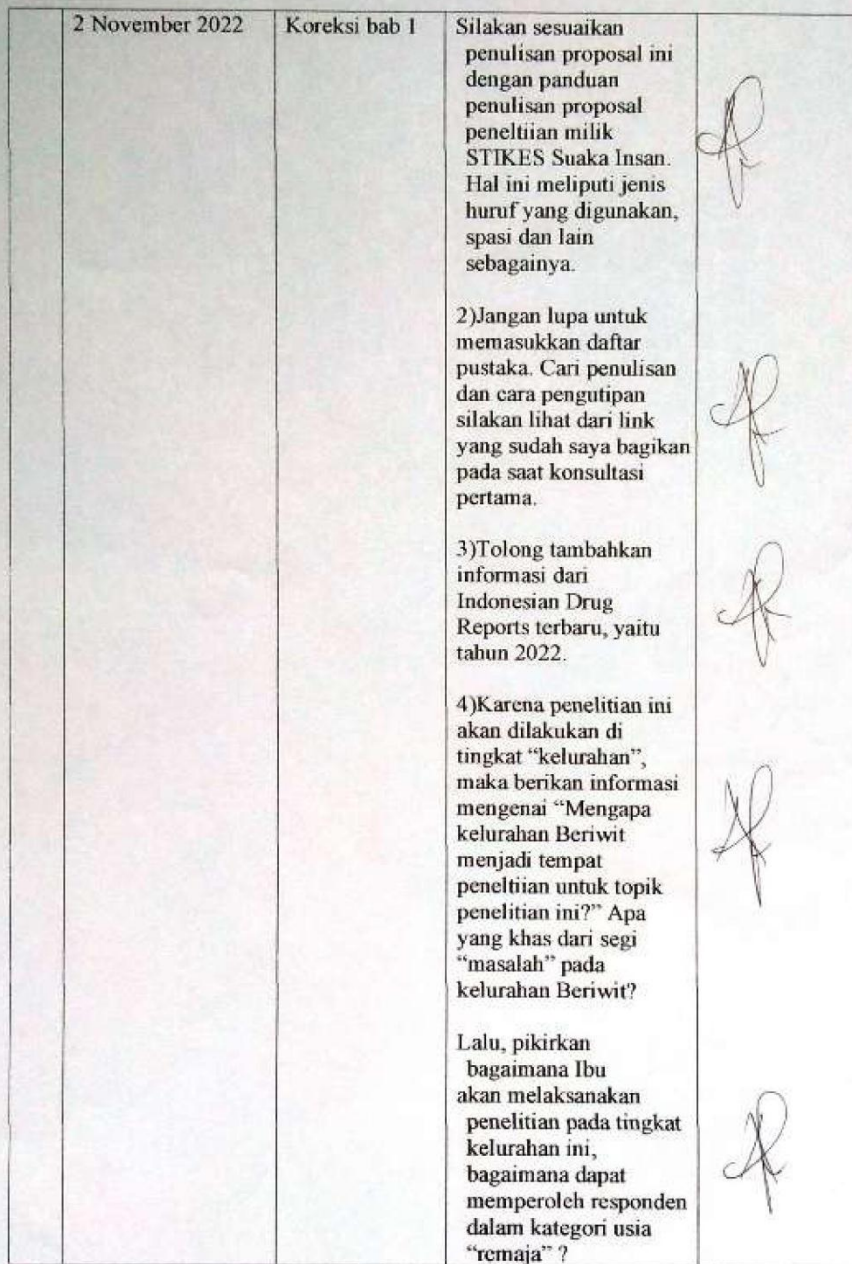 2 November 2022
Koreksi bab 1
Silakan sesuaikan
penulisan proposal ini
dengan panduan
penulisan proposal
peneltiian milik
STIKES Suaka Insan.
Hal ini meliputi jenis
huruf yang digunakan,
spasi dan lain
sebagainya.
2)Jangan lupa untuk
memasukkan daftar
pustaka. Cari penulisan
dan cara pengutipan
silakan lihat dari link
yang sudah saya bagikan
pada saat konsultasi
pertama.
3)Tolong tambahkan
informasi dari
Indonesian Drug
Reports terbaru, yaitu
tahun 2022.
4)Karena penelitian ini
akan dilakukan di
tingkat “kelurahan”,
maka berikan informasi
mengenai “Mengapa
kelurahan Beriwit
menjadi tempat
peneltiian untuk topik
penelitian ini?” Apa
yang khas dari segi
“masalah” pada
kelurahan Beriwit?
Lalu, pikirkan
bagaimana Ibu
akan melaksanakan
penelitian pada tingkat
kelurahan ini,
bagaimana dapat
memperoleh responden
dalam kategori usia
“remaja” ?